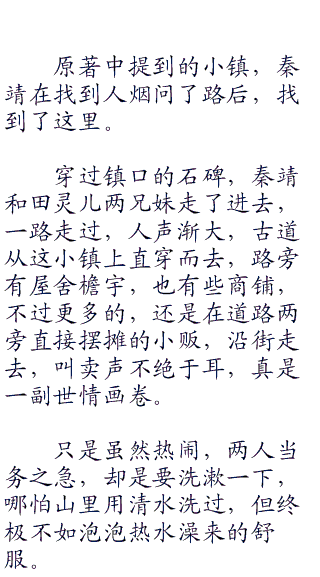 原著中提到的小镇，秦
靖在找到人烟问了路后，找
到了这里。
穿过镇口的石碑，秦靖
和田灵儿两兄妹走了进去，
一路走过，人声渐大，古道
从这小镇上直穿而去，路旁
有屋舍檐宇，也有些商铺，
不过更多的，还是在道路两
旁直接摆摊的小贩，沿街走
去，叫卖声不绝于耳，真是
一副世情画卷。
只是虽然热闹，两人当
务之急，却是要洗漱一下，
哪怕山里用清水洗过，但终
极不如泡泡热水澡来的舒
服。